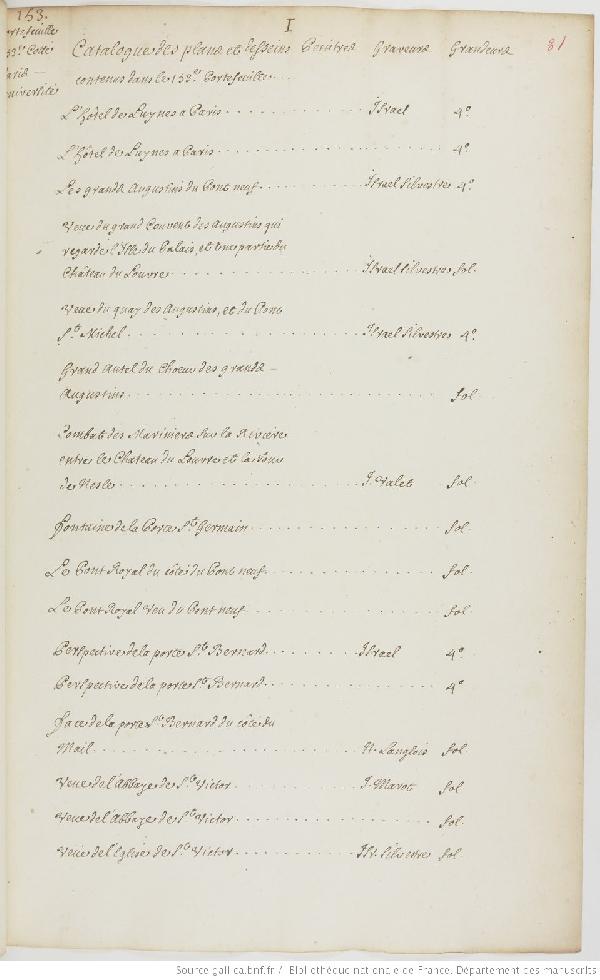 153.
I
81
133.e Cotte
université
Catalogue des plans et desseins Peintres Graveurs Grandeurs
contenus dans le 133.e Portefeuille
L'hôtel de Luynes a Paris Israel 4.o
L'hôtel de Luynes a Paris 4.o
Les grands Augustins du Pont neuf. Israel Silvestre 4.o
Veue du grand Couvent des Augustins qui
regarde l'Isle du Palais, et une partie du
Château du Louvre Israel Silvestre fol.
Veue du quay des Augustins, et du Pont
St. Michel Israel Silvestre 4.o
Grand Autel du Choeur des grands
Augustins fol.
Combat des Mariniers sur la Riviere
entre le Chateau du Louvre et la tour
de Nesle J. Valet fol.
Fontaine de la Porte St. Germain fol.
Le Pont Royal du côté du Pont neuf. fol.
Le Pont Royal veu du Pont neuf fol.
Perspective de la porte St. Bernard Israel 4.o
Perspective de la porte St. Bernard 4.o
Face de la porte St. Bernard du côté du
Mail N. Langlois fol.
Veue de l'Abbaye de St. Victor J. Marot fol.
Veue de l'Abbaye de St. Victor fol.
Veue de l'Eglise de St. Victor Isr. Silvestre fol.
Source gallica.bnf.fr / Bibliothèque nationale de France. Département des manuscrits